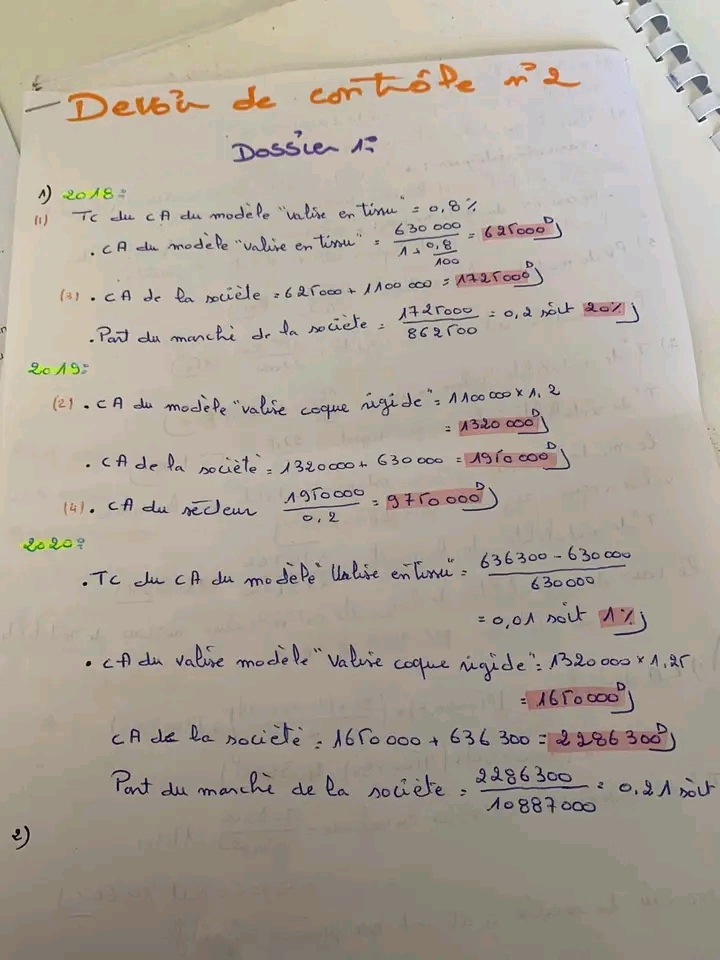 Devoir de contrôle n°2
Dossier 1:
1) 2018:
(1) Tc du CA du modèle "valise en tissu" = 0,8%
. CA du modèle "valise en tissu" = 630 000 / 1 + 0,8/100 = 625000 D
(3) . CA de la sociète = 625000 + 1100 000 = 1725000 D
. Part du marchè de la sociète = 1725000 / 862500 = 0,2 soit 20%
2019:
(2) . CA du modèle "valise coque rigide" = 1100 000 x 1,2
= 1320 000 D
. CA de la sociètè = 1320000 + 630 000 = 1950 000 D
(4) . CA du secteur 1950000 / 0,2 = 9750 000 D
2020:
. Tc du CA du modèle "Valise en tissu" = 636300 - 630 000 / 630000
= 0,01 soit 1%
. CA du valise modèle "Valise coque rigide" = 1320000 x 1,25
= 1650000 D
CA de la sociètè = 1650000 + 636 300 = 2286300 D
Part du marchè de la sociète = 2286300 / 10887000 = 0,21 soit
2)